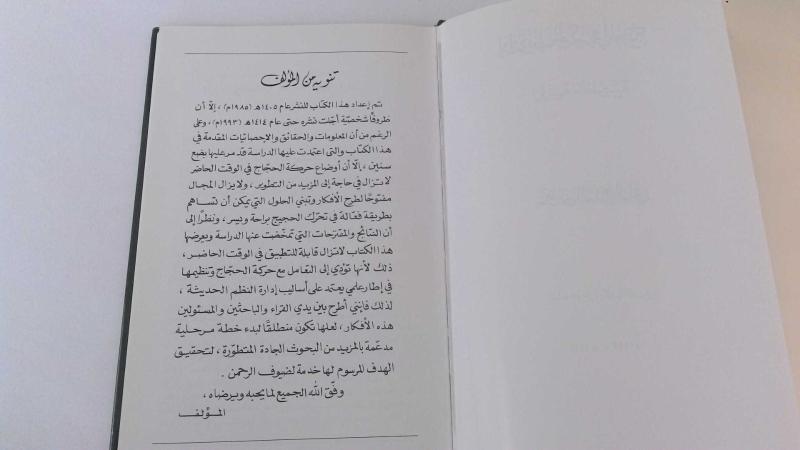 تنويه من المؤلف
تم إعداد هذا الكتاب للنشر عام ١٤٠٥هـ (١٩٨٥م) ، إلّا أن
ظروفًا شخصيّة أجّلت نشره حتى عام ١٤١٤هـ (١٩٩٣م)، وعلى
الرغم من أن المعلومات والحقائق والإحصائيات المقدمة في
هذا الكتاب والتي اعتمدت عليها الدراسة قد مر عليها بضع
سنين ، إلّا أن أوضاع حركة الحجّاج في الوقت الحاضر
لا تزال في حاجة إلى المزيد من التطوير ، ولا يزال المجال
مفتوحًا لطرح الأفكار وتبني الحلول التي يمكن أن تساهم
بطريقة فعّالة في تحرّك الحجيج براحة ويسر ، ونظرًا إلى
أن النتائج والمقترحات التي تمخّضت عنها الدراسة ويعرضها
هذا الكتاب لا تزال قابلة للتطبيق في الوقت الحاضر ،
ذلك لأنها تؤدي إلى التعامل مع حركة الحجّاج وتنظيمها
في إطار علمي يعتمد على أساليب إدارة النظم الحديثة ،
لذلك فإنني أطرح بين يدي القراء والباحثين والمسئولين
هذه الأفكار ، لعلها تكون منطلقًا لبدء خطة مرحلية
مدعّمة بالمزيد من البحوث الجادة المتطوّرة ، لتحقيق
الهدف المرسوم لها خدمة لضيوف الرحمن .
وفّق الله الجميع لما يحبه ويرضاه ،
المؤلف